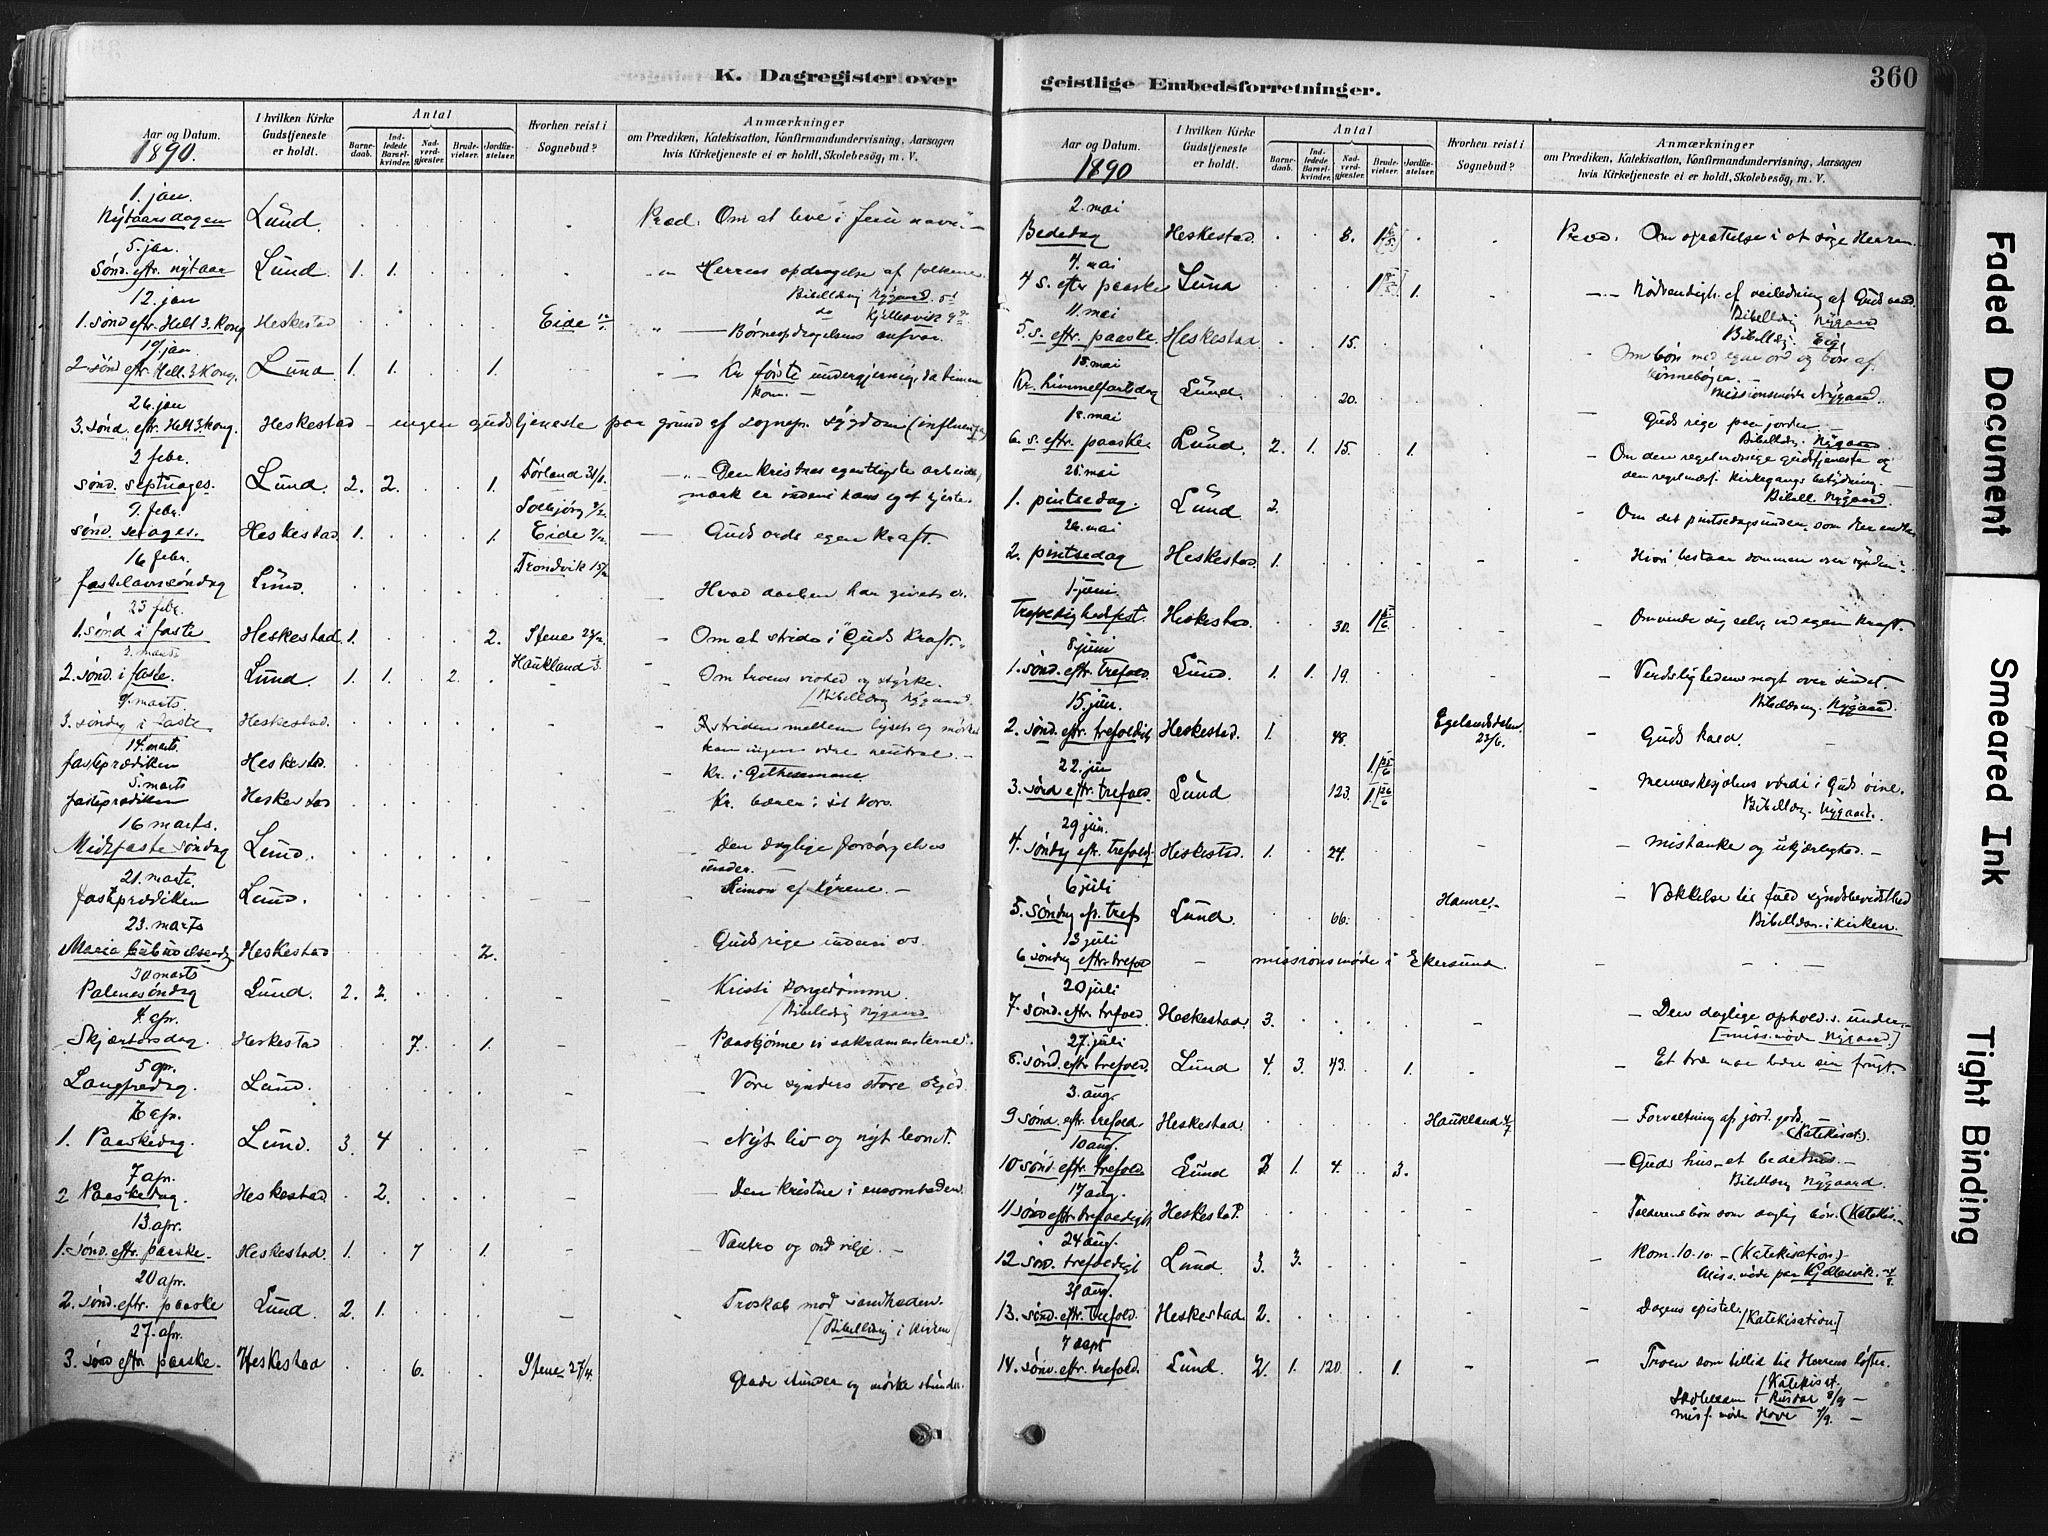 K. Dagregister over
Aar og Datum.
1890.
I hvilken Kirke Gudstjeneste er holdt.
Antal
Barnedaab.
Indledede Barselkvinder.
Nadverdgjester.
Brudevielser.
Jordfæstelser.
Hvorhen reist i Sognebud?
Anmærkninger
om Prædiken, Katekisation, Konfirmandundervisning, Aarsagen
hvis Kirketjeneste ei er holdt, Skolebesøg, m. V.
1. jan.
Nytaarsdagen Lund. Præd. Om at leve i Jesu navn.
5. jan.
Sønd. eftr. nytaar Lund. 1. 1. Herrens opdragelse af folkene.
Bibellæsng Nygaard
12. jan
do Kjellesvik
1. sønd eftr. Hell. 3. Kong. Heskestad Eide Børneopdragelsens ansvar.
19/jan
2. sønd eftr. Hell. 3 Kong. Lund. 1. 1. 1. Kr første undergjerning, da timen
kom.
26. jan
3. sønd. eftr. Hell 3. Kong. Heskestad - ingen gudstjeneste paa grund af sognepr. sygdom (influenza)
2 febr.
sønd. septuages. Lund. 2. 2. 1. Tørland 31/1. Den kristnes egentligste arbeids
mark er indeni hans eget hjerte.
9. febr. Solbjørg
sønd. sexages. Heskestad. 1. 1. Eide Guds ords egen kraft.
16 febr. Trondvik
fastelavnssøndag Lund.
23 febr.
1. sønd i faste Heskestad 1. 2. Stene Om at stride i "Guds Kraft."
2. marts Haukland
2. sønd i faste. Lund. 1. 1. 2. Om troens vished og styrke.
[Bibellæsng Nygaard
9. marts.
3. søndg i faste Heskestad. I striden mellem lyset og mørket
kan ingen være neutral.
14. marts.
fasteprædiken Heskestad. Kr. i Gethesemane
5. marts
fasteprædiken Heskestad Kr. bærer sit kors.
16 marts.
Midfaste søndag Lund. Den daglige forsørgelses
under.
21. marts.
fastprædiken Lund. Simon af Kyrene.
23. marts
Maria Heskestad 2. Guds rige indeni os.
30 marts
Palmesøndag Lund. 2. 2. Kristi kongedømme.
[Bibellæsng Nygaard
4. apr.
Skjærtorsdag. Heskestad 7. 1. Paaskjønne vi sakramenterne?
5 apr.
Langfredag. Lund. Vore synders store skyld.
6 apr.
1. Paaskedag. Lund. 3. 4 Nyt liv og nyt levnet.
7 apr.
2 Paaskedag. Heskestad 2. Den kristne i ensomheden.
13. apr.
1. sønd. eftr. paaske. Heskestad. 1. 7 1. Vantro og ond vilje.
20 apr.
2. sønd. eftr. paaske Lund. 2. 1. Troskab mod sandheden.
[Bibellæsng i kirken]
27. apr.
3. sønd eftr paaske. Heskestad 6. Stene 27/4. Glade stunder og mørke stunder.
geistlige Embedsforretninger.
360
Aar og Datum.
1890
I hvilken Kirke Gudstjeneste er holdt.
Antal
Barnedaab.
Indledede Barselkvinder.
Nadverdgjester.
Brudevielser.
Jordfæstelser.
Hvorhen reist i Sognebud?
Anmærkninger
om Prædiken, Katekisation, Konfirmandundervisning, Aarsagen
hvis Kirketjeneste ei er holdt, Skolebesøg, m. V.
2. mai
Bededag Heskestad. 8. Præd. Om oprættelse i at søge Herren.
4. mai
4 s. efter paaske Lund 1. Nødvendigh. af veiledning af Guds aand.
Bibellæsng Nygaard
11. mai
Bibellæsng Eig.
5. s. eftr. paaske. Heskestad. 15. Om bøn med egne ord og bøn af
bønnebøger.
15. mai
Missionsmøde Nygaard.
Kr. himmelfartsdag Lund. 20. Guds rige paa jorden
18. mai
Bibellæsg. Nygaard
6. s. eftr. paaske Lund 2. 1. 15. 1. Om den regelmæssige gudstjeneste og
den regelmæss. kirkegangs betydning.
25. mai
Bibell. Nygaard.
1. pintsedag. Lund 2. Om det pintsedagsunder, som
26. mai
2. pintsedag Heskestad. 1. Hvori bestaar dommen over synden?
1. juni
Trefoldighedsfest. Heskestad 30. Omvende dig selv ved egen kraft.
8. juni
1. sønd. eftr. trefold. Lund. 1. 1. 19. Verdslighedens magt over sindet.
Bibellæsng. Nygaard.
15. jun.
2. sønd. eftr. trefoldigh Heskestad. 1. 48. Egelandsdalen 23/6. Guds kald.
22. jun
3. sønd eftr. trefold. Lund 123. Menneskesjælens værdi i Guds øine.
Bibellæsg. Nygaard.
29 jun.
4. søndg eftr. trefold. Heskestad. 1. 24. Mistanke og ukjærlighed.
6 juli
5. søndg ef. tref Lund. 66. Hamre. Vækkelse til fuld syndsbevidsthed
Bibellæsn. i kirken.
13 juli
6 søndg eftr trefold - missionsmøde i Ekersund.
20 juli
7. sønd. eftr. trefold. Heskestad. 3. Den daglige ophold.s. under.
[miss. møde Nygaard.]
27. juli
8. sønd. eftr. trefold. Lund 4. 3. 43. 1. Et træ maa bære sin frugt.
3. aug.
9 sønd. eftr. trefold. Heskestad. Haukland 4/7 Forvaltning af jord. gods.
(Katekisat.).
10 aug.
10 sønd. eftr. trefold. Lund 2 1. 4. 3. Guds hus et bedehus.
Bibellæsg Nygaard.
17 aug.
11 sønd eftr. trefoldigh Heskestad. Tolderens bøn som daglig bøn. (Katekis.
24 aug.
12 sønd. trefoldigh Lund. 3. 3. Rom. 10. 10 - (Katekisation)
Miss. møde paa Kjellesvik.
31 aug.
13. sønd. eftr. trefold. Heskestad. 2. Dagens epistel. [Katekisation.]
7 sept
14. sønd. eftr. trefold. Lund. 2. 1. 120. 1. Troen som tillid til Herrens løfter.
[Katekisat.
8/9
misf. møde Hove 9/9.
Faded Document
Smeared Ink
Tight Binding